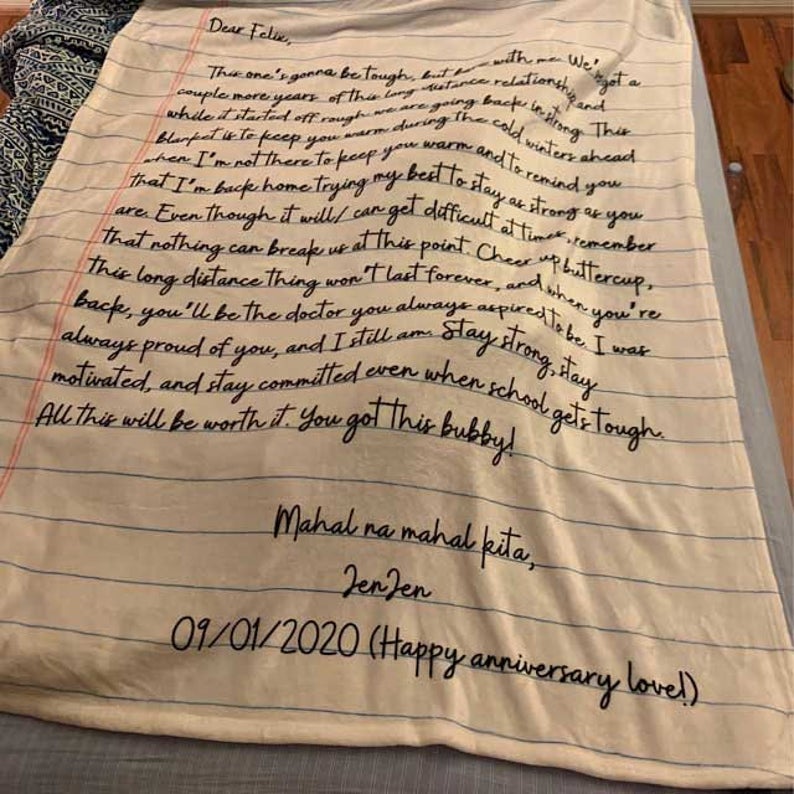 Dear Felix,
This one's gonna be tough, but bare with me. We've got a
couple more years of this long distance relationship and
while it started off rough we are going back in strong. This
blanket is to keep you warm during the cold winters ahead
when I'm not there to keep you warm and to remind you
that I'm back home trying my best to stay as strong as you
are. Even though it will/ can get difficult at times, remember
that nothing can break us at this point. Cheer up buttercup,
this long distance thing won't last forever, and when you're
back, you'll be the doctor you always aspired to be. I was
always proud of you, and I still am. Stay strong, stay
motivated, and stay committed even when school gets tough.
All this will be worth it. You got this bubby!
Mahal na mahal kita,
JenJen
09/01/2020 (Happy anniversary love!)